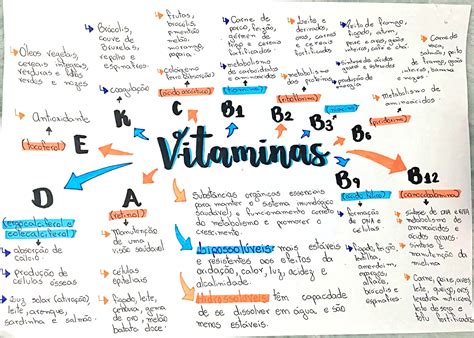 Óleos vegetais,
cereais integrais,
verduras e folhas
verdes e nozes
Antioxidante
(tocoferol)
E
Brócolis,
couve de
Bruxelas,
repolho e
espinafres.
coagulação
K
frutas,
brócolis,
pimentão
melão,
morango,
papaia
(ácido ascórbico)
C
Carne de
porco, feijão,
gérmen de
trigo e cereais
fortificados
metabolismo
de carboidratos
e aminoácidos
(tiamina)
B1
Leite e
derivados,
ovos, carnes
e cereais
fortificados
metabolismo
dos proteínas
(riboflavina)
B2
peito de frango,
fígado, atum,
café e chá.
produção de
energia
(niacina)
B3
Carne de
vaca,
salmão, peito
de frango,
metabolismo
de
aminoácidos
(piridoxina)
B6
Vitaminas
D
(ergocalciferol e
colecalciferol)
absorção de
cálcio
produção de
células ósseas
luz solar (ativação),
leite, arenque,
sardinha e salmão.
A
(retinol)
Manutenção
de uma
visão saudável
células
epiteliais
fígado, leite,
cenoura, gema
de ovo, melão
batata doce
Substâncias orgânicas essenciais
para manter o sistema imunológico
saudável, o funcionamento correto
do metabolismo e promover o
crescimento
Lipossolúveis: mais estáveis
e resistentes aos efeitos da
oxidação, calor, luz, acidez e
alcalinidade.
Hidrossolúveis: têm capacidade
de se dissolver em água e são
menos estáveis.
B9
(ácido fólico)
formação
de DNA e
RNA
fígado, feijão,
batata,
amendoim,
aspargos,
alface,
brócolis e
espinafres.
B12
(cianocobalamina)
síntese de DNA e RNA
metabolismo de
aminoácidos e
de ácidos
graxos
síntese e
manutenção
da mielina
Carne, peixe, aves,
leite, queijo, ovos,
levedura nutricional
leite de soja e
tofu fortificados